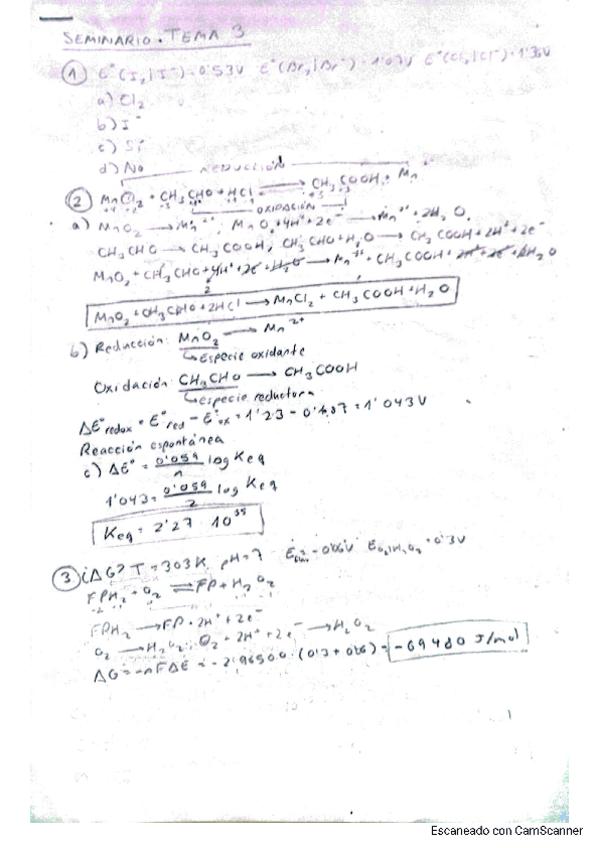 SEMINARIO. TEMA 3
① E°(I₂|I⁻) = 0'53V E°(Br₂|Br⁻) = 1'07V E°(Cl₂|Cl⁻) = 1'36V
a) Cl₂
b) I⁻
c) Sí
d) No
REDUCCIÓN
② MnO₂ + CH₃CHO + HCl → CH₃COOH + Mn²⁺
OXIDACIÓN
a) MnO₂ → Mn²⁺; MnO₂ + 4H⁺ + 2e⁻ → Mn²⁺ + 2H₂O.
CH₃CHO → CH₃COOH; CH₃CHO + H₂O → CH₃COOH + 2H⁺ + 2e⁻
MnO₂ + CH₃CHO + 4H⁺ + 2e⁻ + H₂O → Mn²⁺ + CH₃COOH + 2H⁺ + 2e⁻ + 2H₂O
2
MnO₂ + CH₃CHO + 2HCl → MnCl₂ + CH₃COOH + H₂O
b) Reducción: MnO₂ → Mn²⁺
↳ Especie oxidante
Oxidación: CH₃CHO → CH₃COOH
↳ especie reductora
ΔE° redox = E°red - E°ox = 1'23 - = 1'043V
Reacción espontánea
c) ΔE° = 0'059/n log Keq
1'043 = 0'059/2 log Keq
Keq = 2'27 · 10³⁵
③ ¿ΔG? T = 303K pH = 7 E = -0'06V E O₂|H₂O₂ = 0'3V
FPH₂ + O₂ ⇌ FP + H₂O₂
FPH₂ → FP + 2H⁺ + 2e⁻
O₂ → H₂O₂; O₂ + 2H⁺ + 2e⁻ → H₂O₂
ΔG = -nFΔE = -2·96500·(0'3 + 0'06) = -69480 J/mol
Escaneado con CamScanner